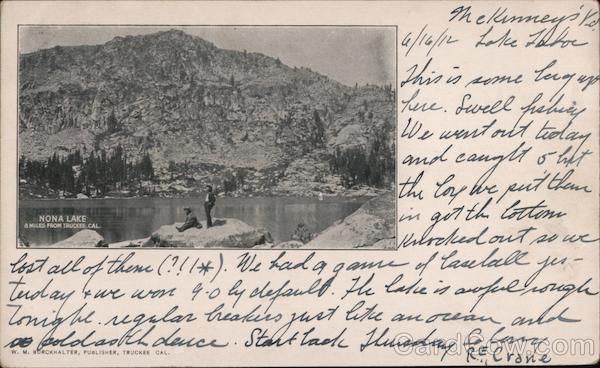 McKinney's
6/16/12 Lake Tahoe
This is some berg up
here. Swell fishing
We went out today
and caught 5 but
the box we put them
in got the bottom
knocked out so we
lost all of them (?!!*). We had a game of baseball yes-
terday & we won 9-0 by default. The lake is awful rough
tonight. regular breakers just like an ocean and
as cold as the deuce. Start back Thursday
R.E. Crane
NONA LAKE
8 MILES FROM TRUCKEE, CAL.
W. M. BURCKHALTER, PUBLISHER, TRUCKEE CAL.
CardCow.com